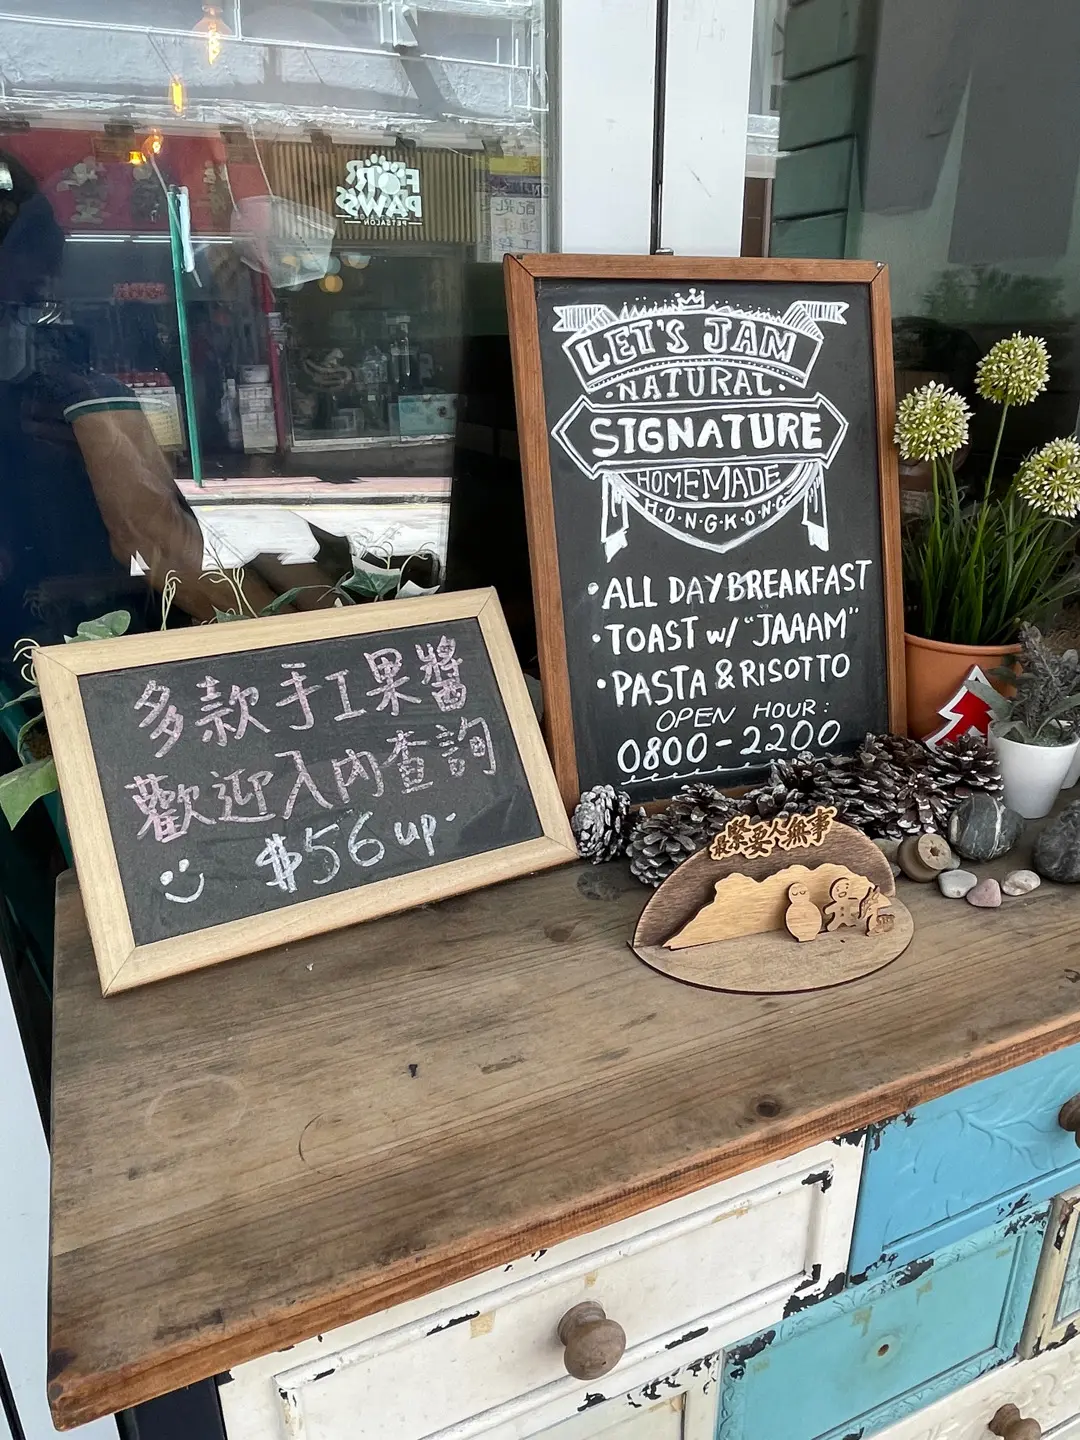 FOR
PAWS
PETSALON
LET'S JAM
·NATURAL·
SIGNATURE
HOMEMADE
H·O·N·G·K·O·N·G
·ALL DAY BREAKFAST
·TOAST w/ "JAAAM"
·PASTA & RISOTTO
OPEN HOUR:
0800-2200
多款手工果醬
歡迎入內查詢
$56 up.
最緊要人無事